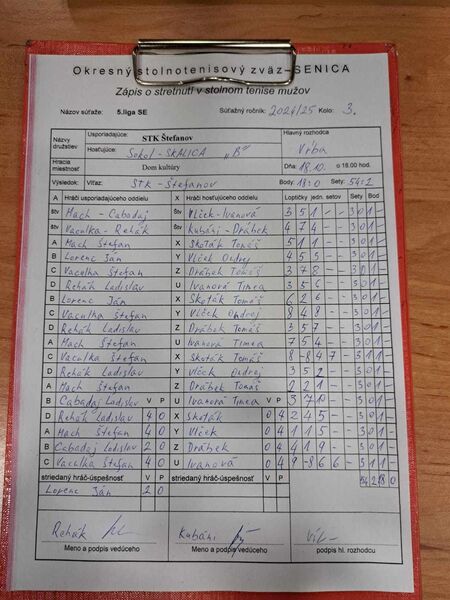 Okresný stolnotenisový zväz–SENICA
Zápis o stretnutí v stolnom tenise mužov
Názov súťaže: 5.liga SE Súťažný ročník: 2024/25 Kolo: 3.
Názvy družstiev Usporiadajúce: STK Štefanov Hlavný rozhodca
Hosťujúce: Sokol-SKALICA "B" Vŕba
Hracia miestnosť Dom kultúry Dňa: 18.10. o 18.00 hod.
Výsledok: Víťaz: STK - Štefanov Body: 18:0 Sety: 54:2
A Hráči usporiadajúceho oddielu X Hráči hosťujúceho oddielu Loptičky jedn. setov Sety Bod
štv Mach - Cabadaj štv Vlček-Ivanová 3 5 1 - - 3 0 1 -
štv Vaculka - Rehák štv Kubáni - Dráhek 4 7 4 - - 3 0 1 -
A Mach Štefan X Skoták Tomáš 5 1 1 - - 3 0 1 -
B Lorenc Ján Y Vlček Ondrej 4 5 5 - - 3 0 1 -
C Vaculka Štefan Z Dráhek Tomáš 3 7 8 - - 3 0 1 -
D Rehák Ladislav U Ivanová Timea 3 5 6 - - 3 0 1 -
B Lorenc Ján X Skoták Tomáš 6 2 6 - - 3 0 1 -
C Vaculka Štefan Y Vlček Ondrej 8 4 8 - - 3 0 1 -
D Rehák Ladislav Z Dráhek Tomáš 3 5 7 - - 3 0 1 -
A Mach Štefan U Ivanová Timea 7 5 4 - - 3 0 1 -
C Vaculka Štefan X Skoták Tomáš 8 -8 4 7 - 3 1 1 -
D Rehák Ladislav Y Vlček Ondrej 3 5 2 - - 3 0 1 -
A Mach Štefan Z Dráhek Tomáš 2 2 1 - - 3 0 1 -
B Cabadaj Ladislav V P U Ivanová Timea V P 3 7 10 - - 3 0 1 -
D Rehák Ladislav 4 0 X Skoták 0 4 2 4 5 - - 3 0 1 -
A Mach Štefan 4 0 Y Vlček 0 4 1 1 5 - - 3 0 1 -
B Cabadaj Ladislav 2 0 Z Dráhek 0 4 4 1 9 - - 3 0 1 -
C Vaculka Štefan 4 0 U Ivanová 0 4 9 -8 6 6 - 3 1 1 -
striedaný hráč-úspešnosť V P striedaný hráč-úspešnosť V P 54 2 18 0
Lorenc Ján 2 0
Rehák Kubáni
Meno a podpis vedúceho Meno a podpis vedúceho podpis hl. rozhodcu